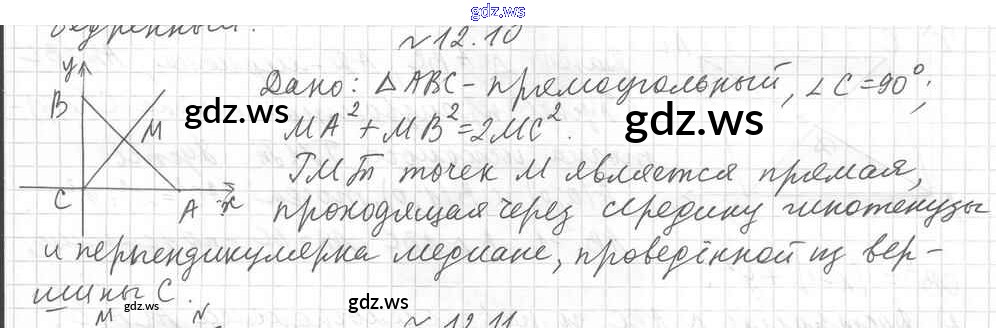 gdz.ws
бедренный.
№12.10
y
B
M
C
A
x
Дано: △ABC - прямоугольный, ∠C=90°;
MA²+MB²=2MC².
gdz.ws
gdz.ws
ГМТ точек M является прямая,
проходящая через середину гипотенузы
и перпендикулярна медиане, проведённой из вер-
шины C.
gdz.ws
gdz.ws
M N
№12.11